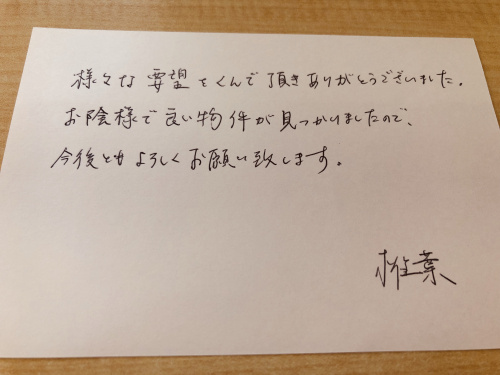 様々な要望をくんで頂きありがとうございました。
お陰様で良い物件が見つかりましたので、
今後ともよろしくお願い致します。
椎葉